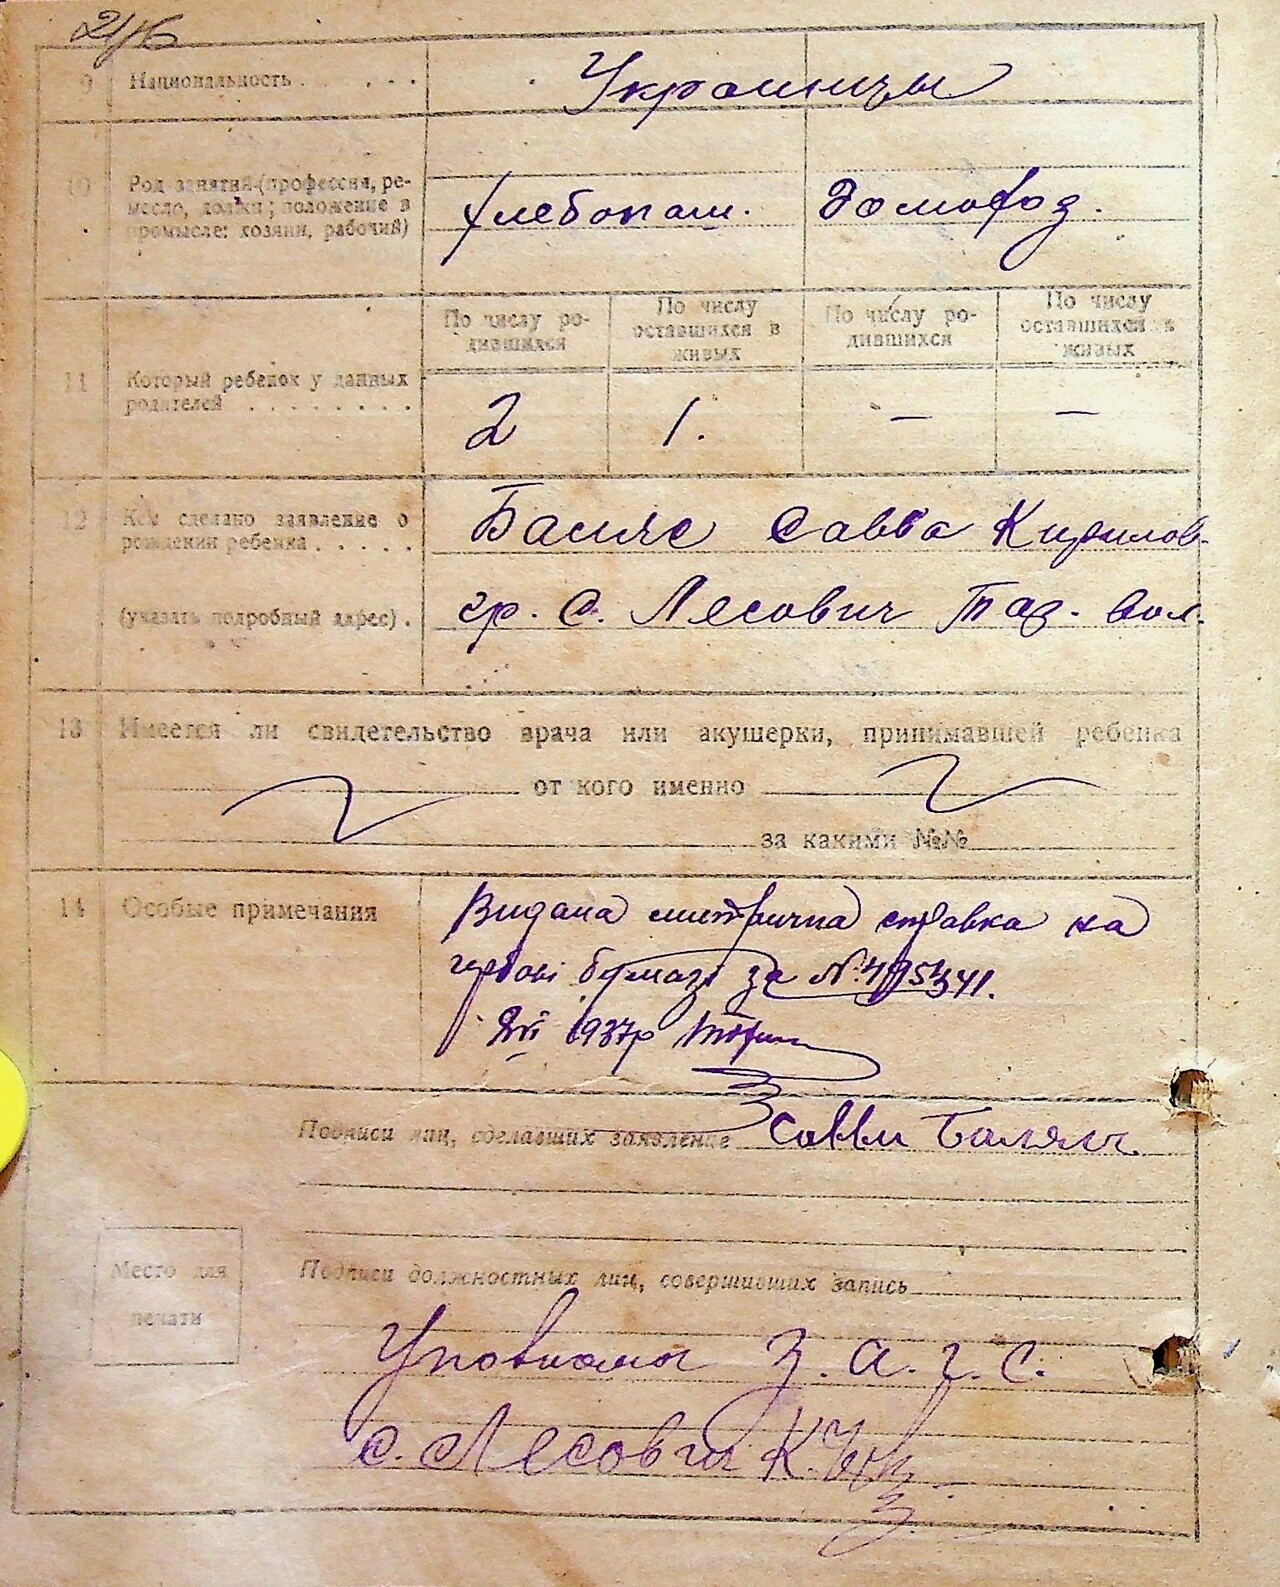 9 Национальность . . . . . Украинцы
10 Род занятий (профессия, ре-
месло, должн; положение в
промысле: хозяин, рабочий)
хлебопаш. домохоз.
По числу ро-
дившихся
По числу
оставшихся в
живых
По числу ро-
дившихся
По числу
оставшихся в
живых
11 Который ребенок у данных
родителей . . . . . . . .
2 1. — —
12 Кем сделано заявление о
рождении ребенка . . . . .
(указать подробный адрес) .
Савва Кирилов.
гр. с. Лесович Тар. вол.
13 Имеется ли свидетельство врача или акушерки, принимавшей ребенка
от кого именно
за какими №№
14 Особые примечания
Видана метрична справка на
гербові бумазі за №
1937р
Подписи лиц, сделавших заявление
Место для
печати
Подписи должностных лиц, совершивших запись
З. А. Г. С.
с. Лесович К.